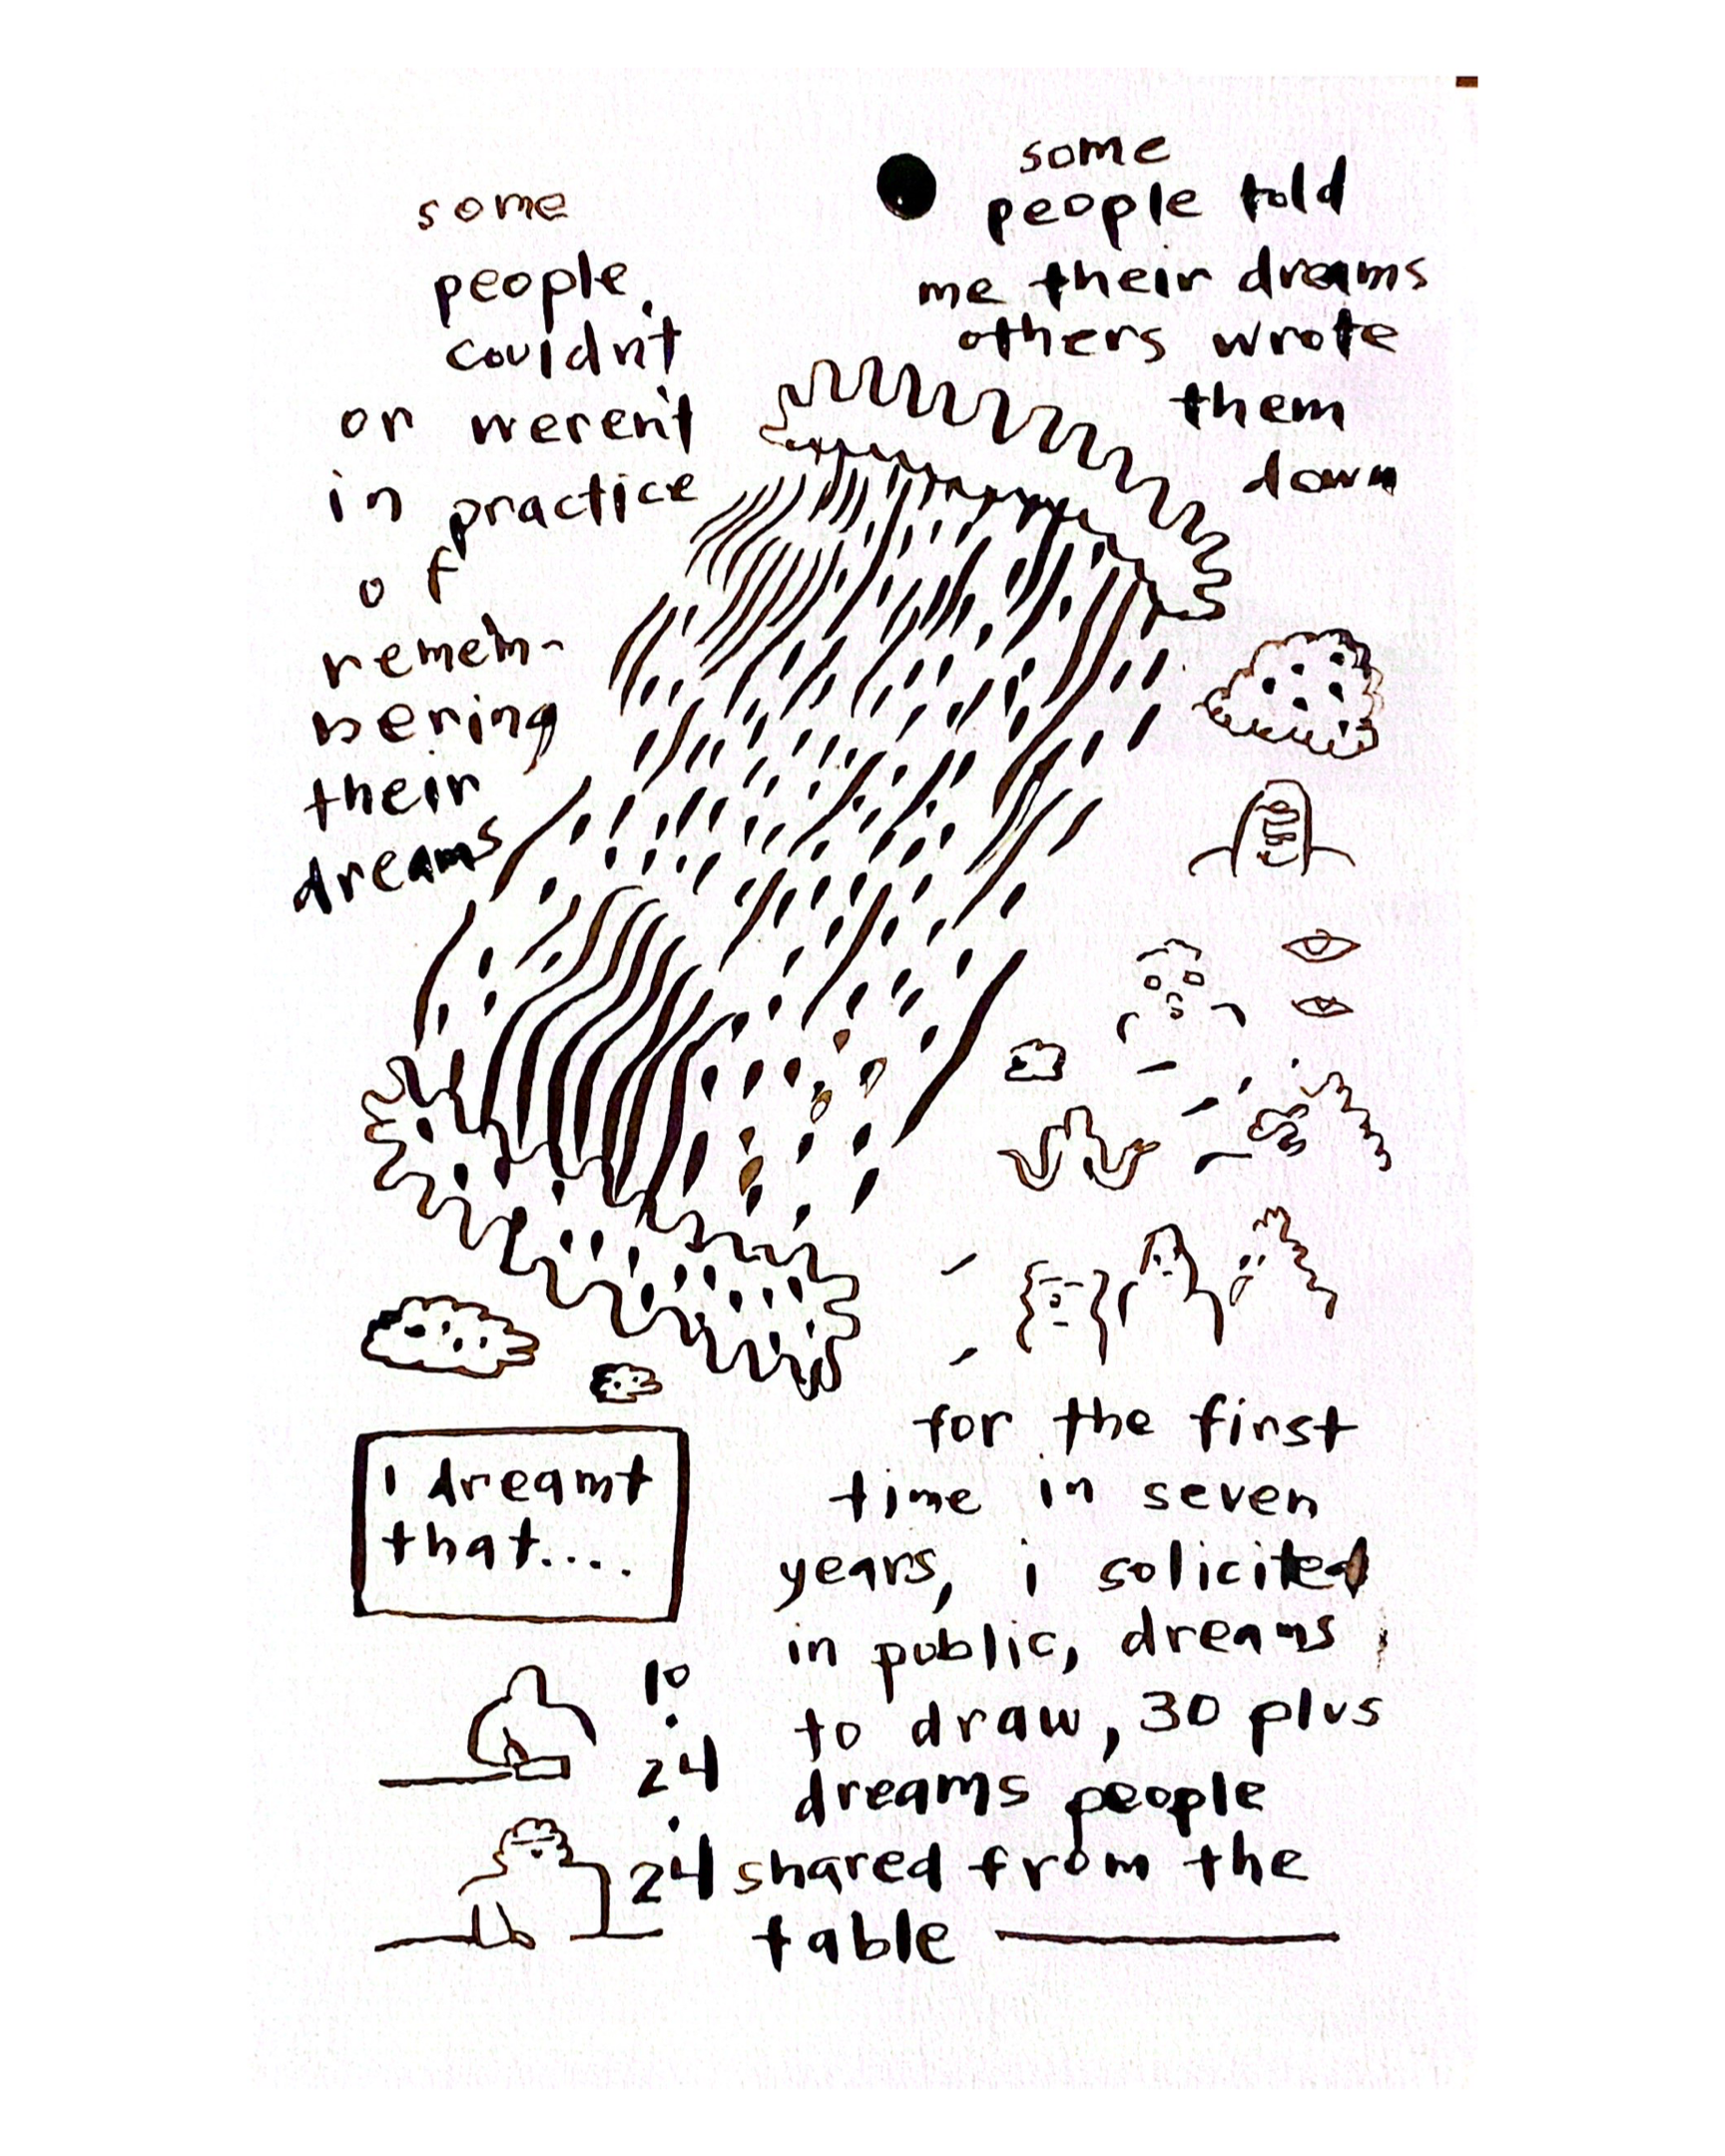 some
people
couldn't
or weren't
in practice
of
remem-
bering
their
dreams
some
people told
me their dreams
others wrote
them
down
I dreamt
that....
10
.
24
.
24
for the first
time in seven
years, i solicited
in public, dreams
to draw, 30 plus
dreams people
shared from the
table